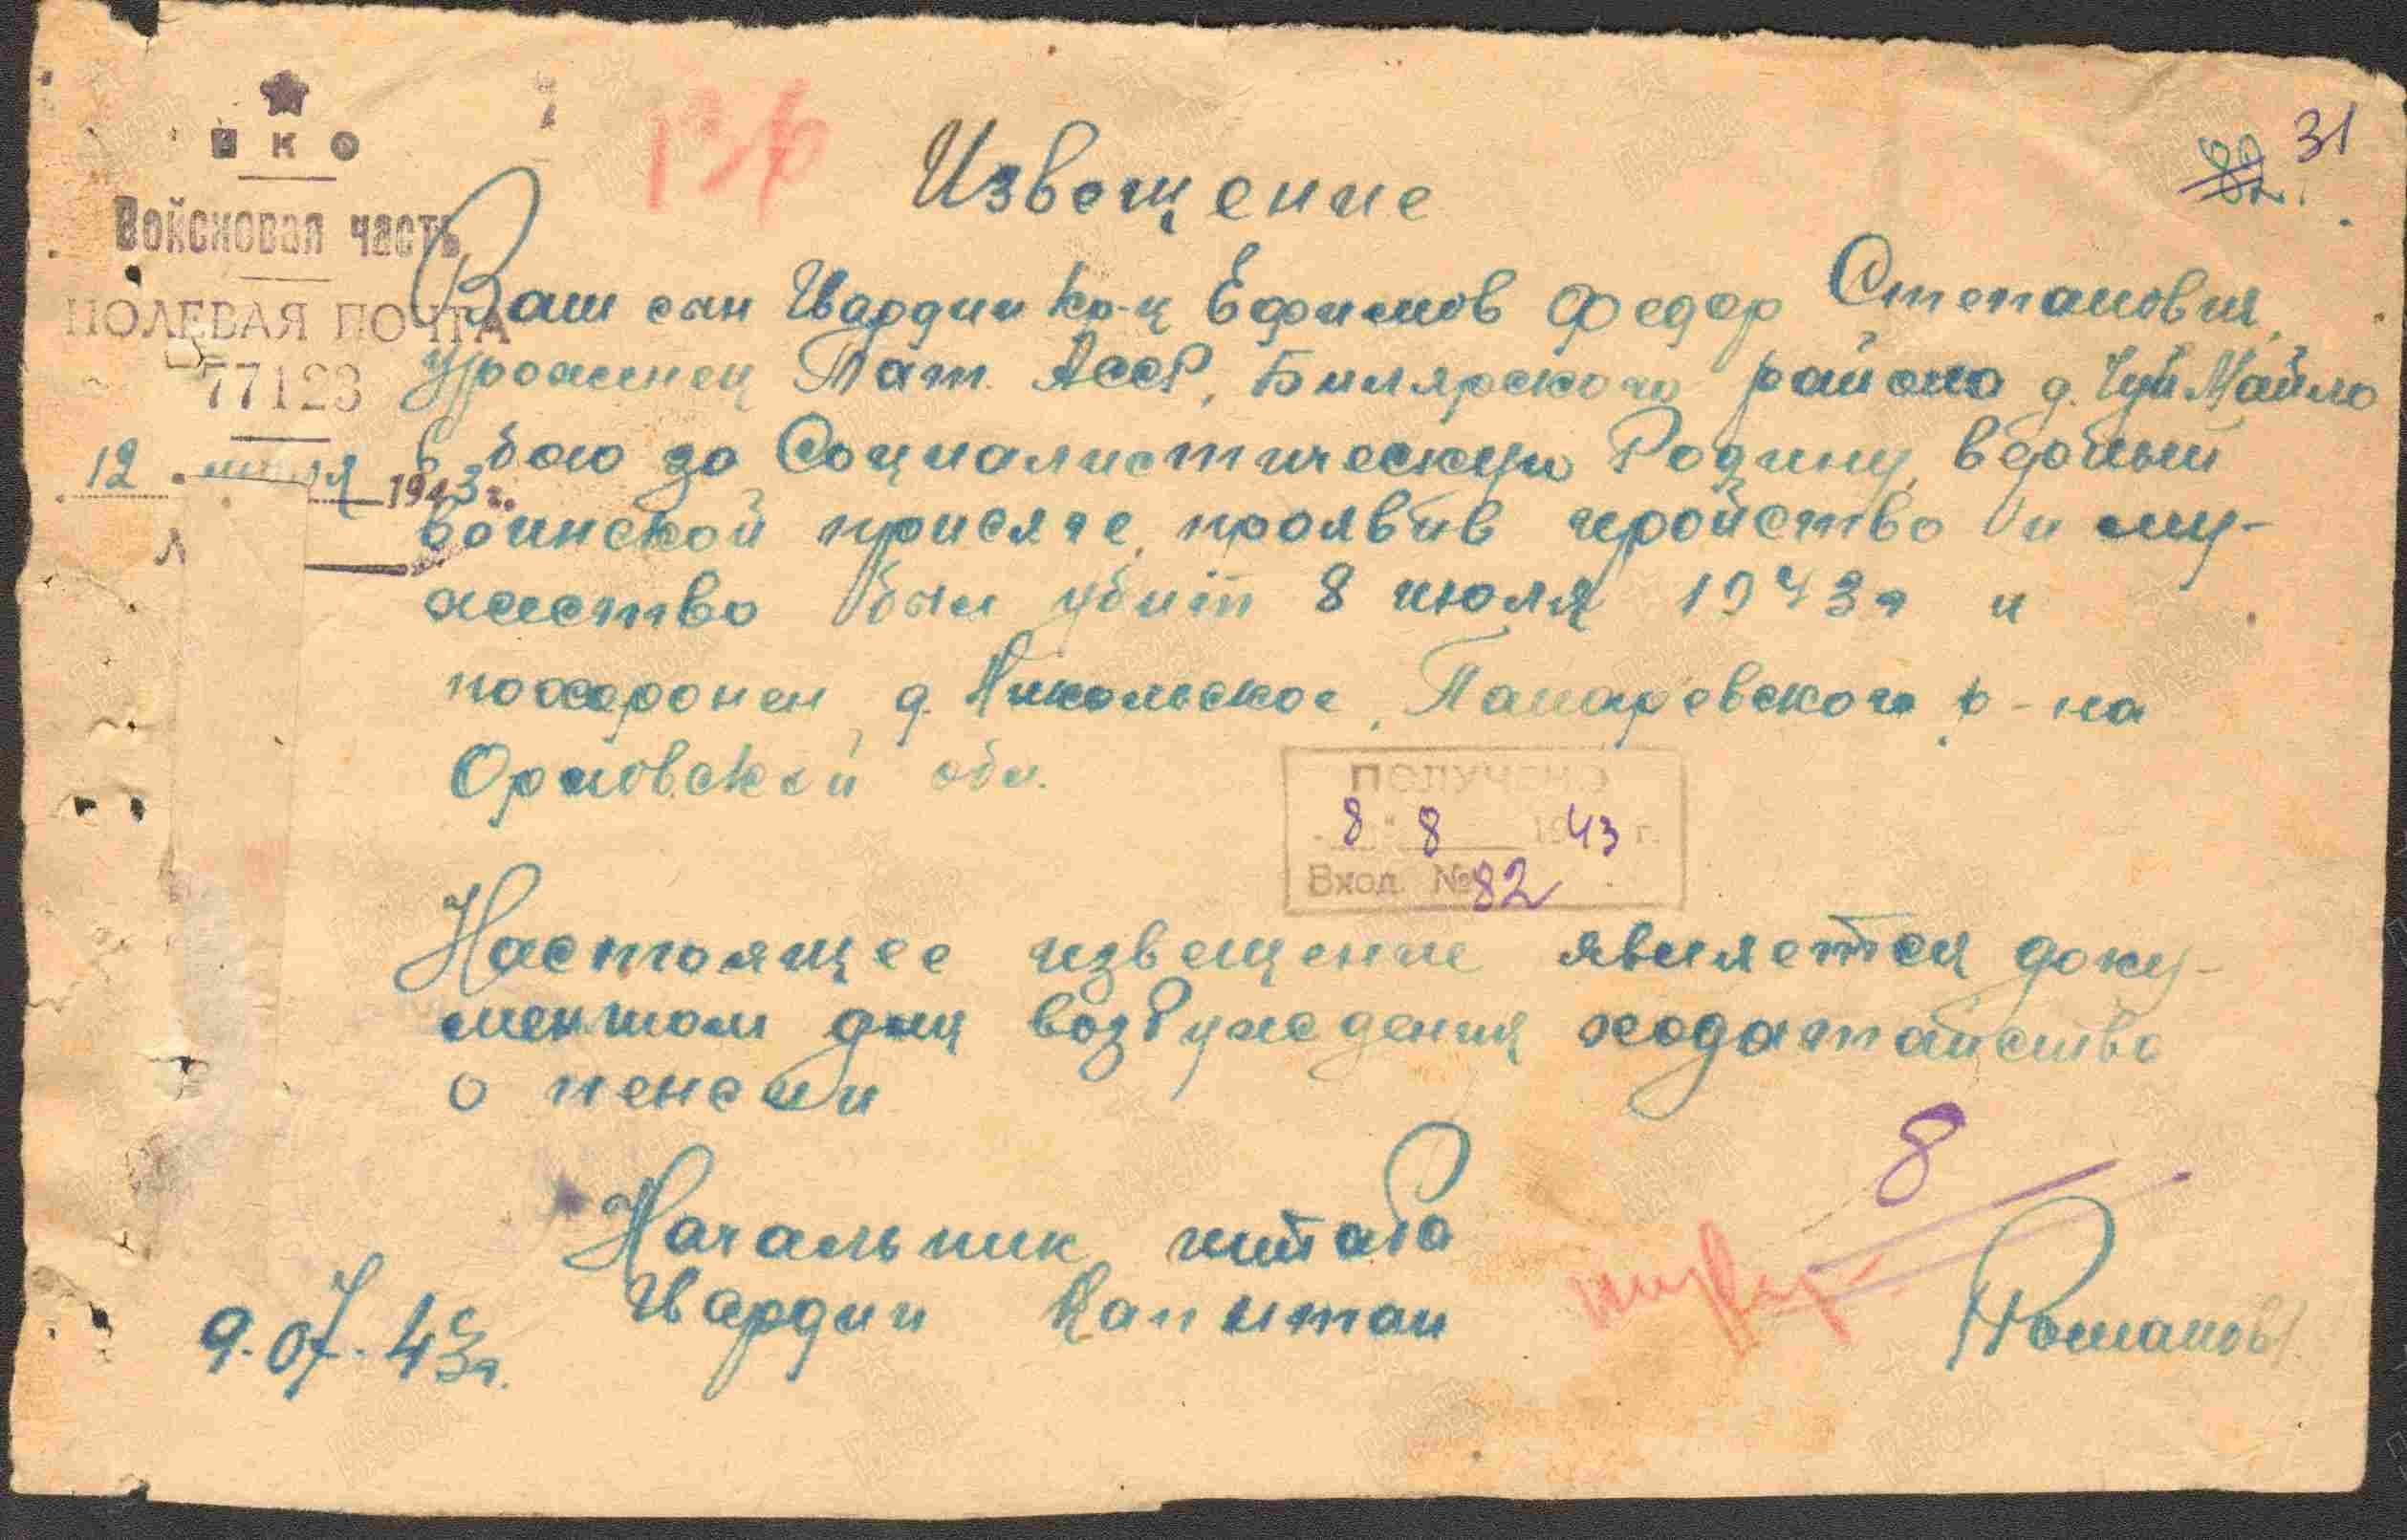 НКО
31
Войсковая часть
Извещение
ПОЛЕВАЯ ПОЧТА
77123
12 июля 1943 г.
Ваш сын Гвардии Кр-ц Ефимов Федор Степанович,
Уроженец Тат. АССР, Билярского района д. Майло
в бою за Социалистическую Родину, верный
воинской присяге, проявив геройство и му-
жество был убит 8 июля 1943г и
похоронен, д. Никольское, р-на
Орловской обл.
ПОЛУЧЕНО
8 " 8 1943 г.
Вход. № 82
Настоящее извещение является доку-
ментом для возбуждения ходатайства
о пенсии
8
Начальник штаба
Гвардии Капитан Романов
9.07.43г.